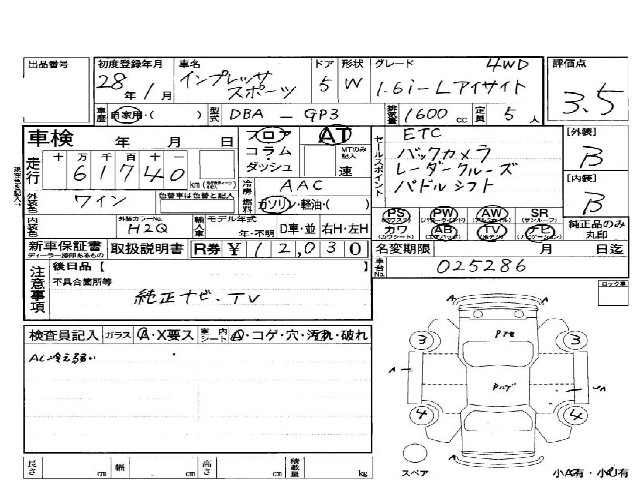 出品番号
初度登録年月 車名 ドア 形状 グレード 4WD 評価点
28年 1月 インプレッサ スポーツ 5 W 1.6i-Lアイサイト 3.5
車歴 自家用・( ) 型式 DBA-GP3 排気量 1600cc 定員 5人
車検 年 月 日 フロア AT
コラム・ MTのみ記入
ダッシュ 速
走行 十 万 千 百 十
61740 km
冷房 AAC
燃料 ガソリン・軽油・( )
外装色 ワイン 色替車は色替と記入
内装色 外装カラーNo. H2Q 輸入車 モデル年式 年・不明 D車・並 右H・左H
セールスポイント
ETC
バックカメラ
レーダークルーズ
パドルシフト
PS PW AW SR
カワ AB TV ナビ
[外装] B
[内装] B
純正品のみ丸印
新車保証書 取扱説明書 R券 ¥12,030
名変期限 月 日迄
車台No. 025286
注意事項 後日品【 】
不具合箇所等
純正ナビ.TV
ロック車
検査員記入 ガラス A・X要ス 車内シート A・コゲ・穴・汚れ・破れ
AC冷え弱い
3 3
A
4 4
スペア
小A有・小U有
長さ cm 幅 cm 高さ cm 積載量 kg